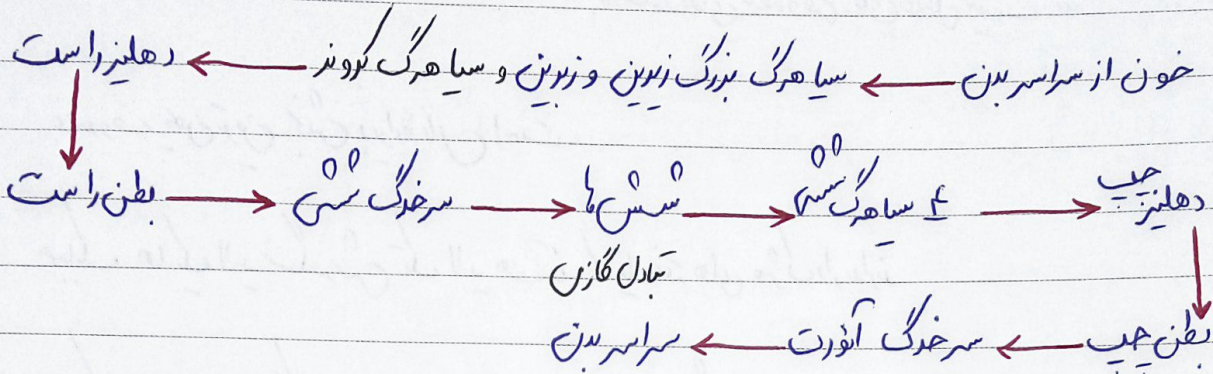 خون از سراسر بدن ← سیاهرگ بزرگ زیرین و زبرین و سیاهرگ کرونر ← دهلیز راست
بطن راست → سرخرگ ششی → شش ها → ۴ سیاهرگ ششی → دهلیز چپ
تبادل گازی
بطن چپ ← سرخرگ آئورت ← سراسر بدن